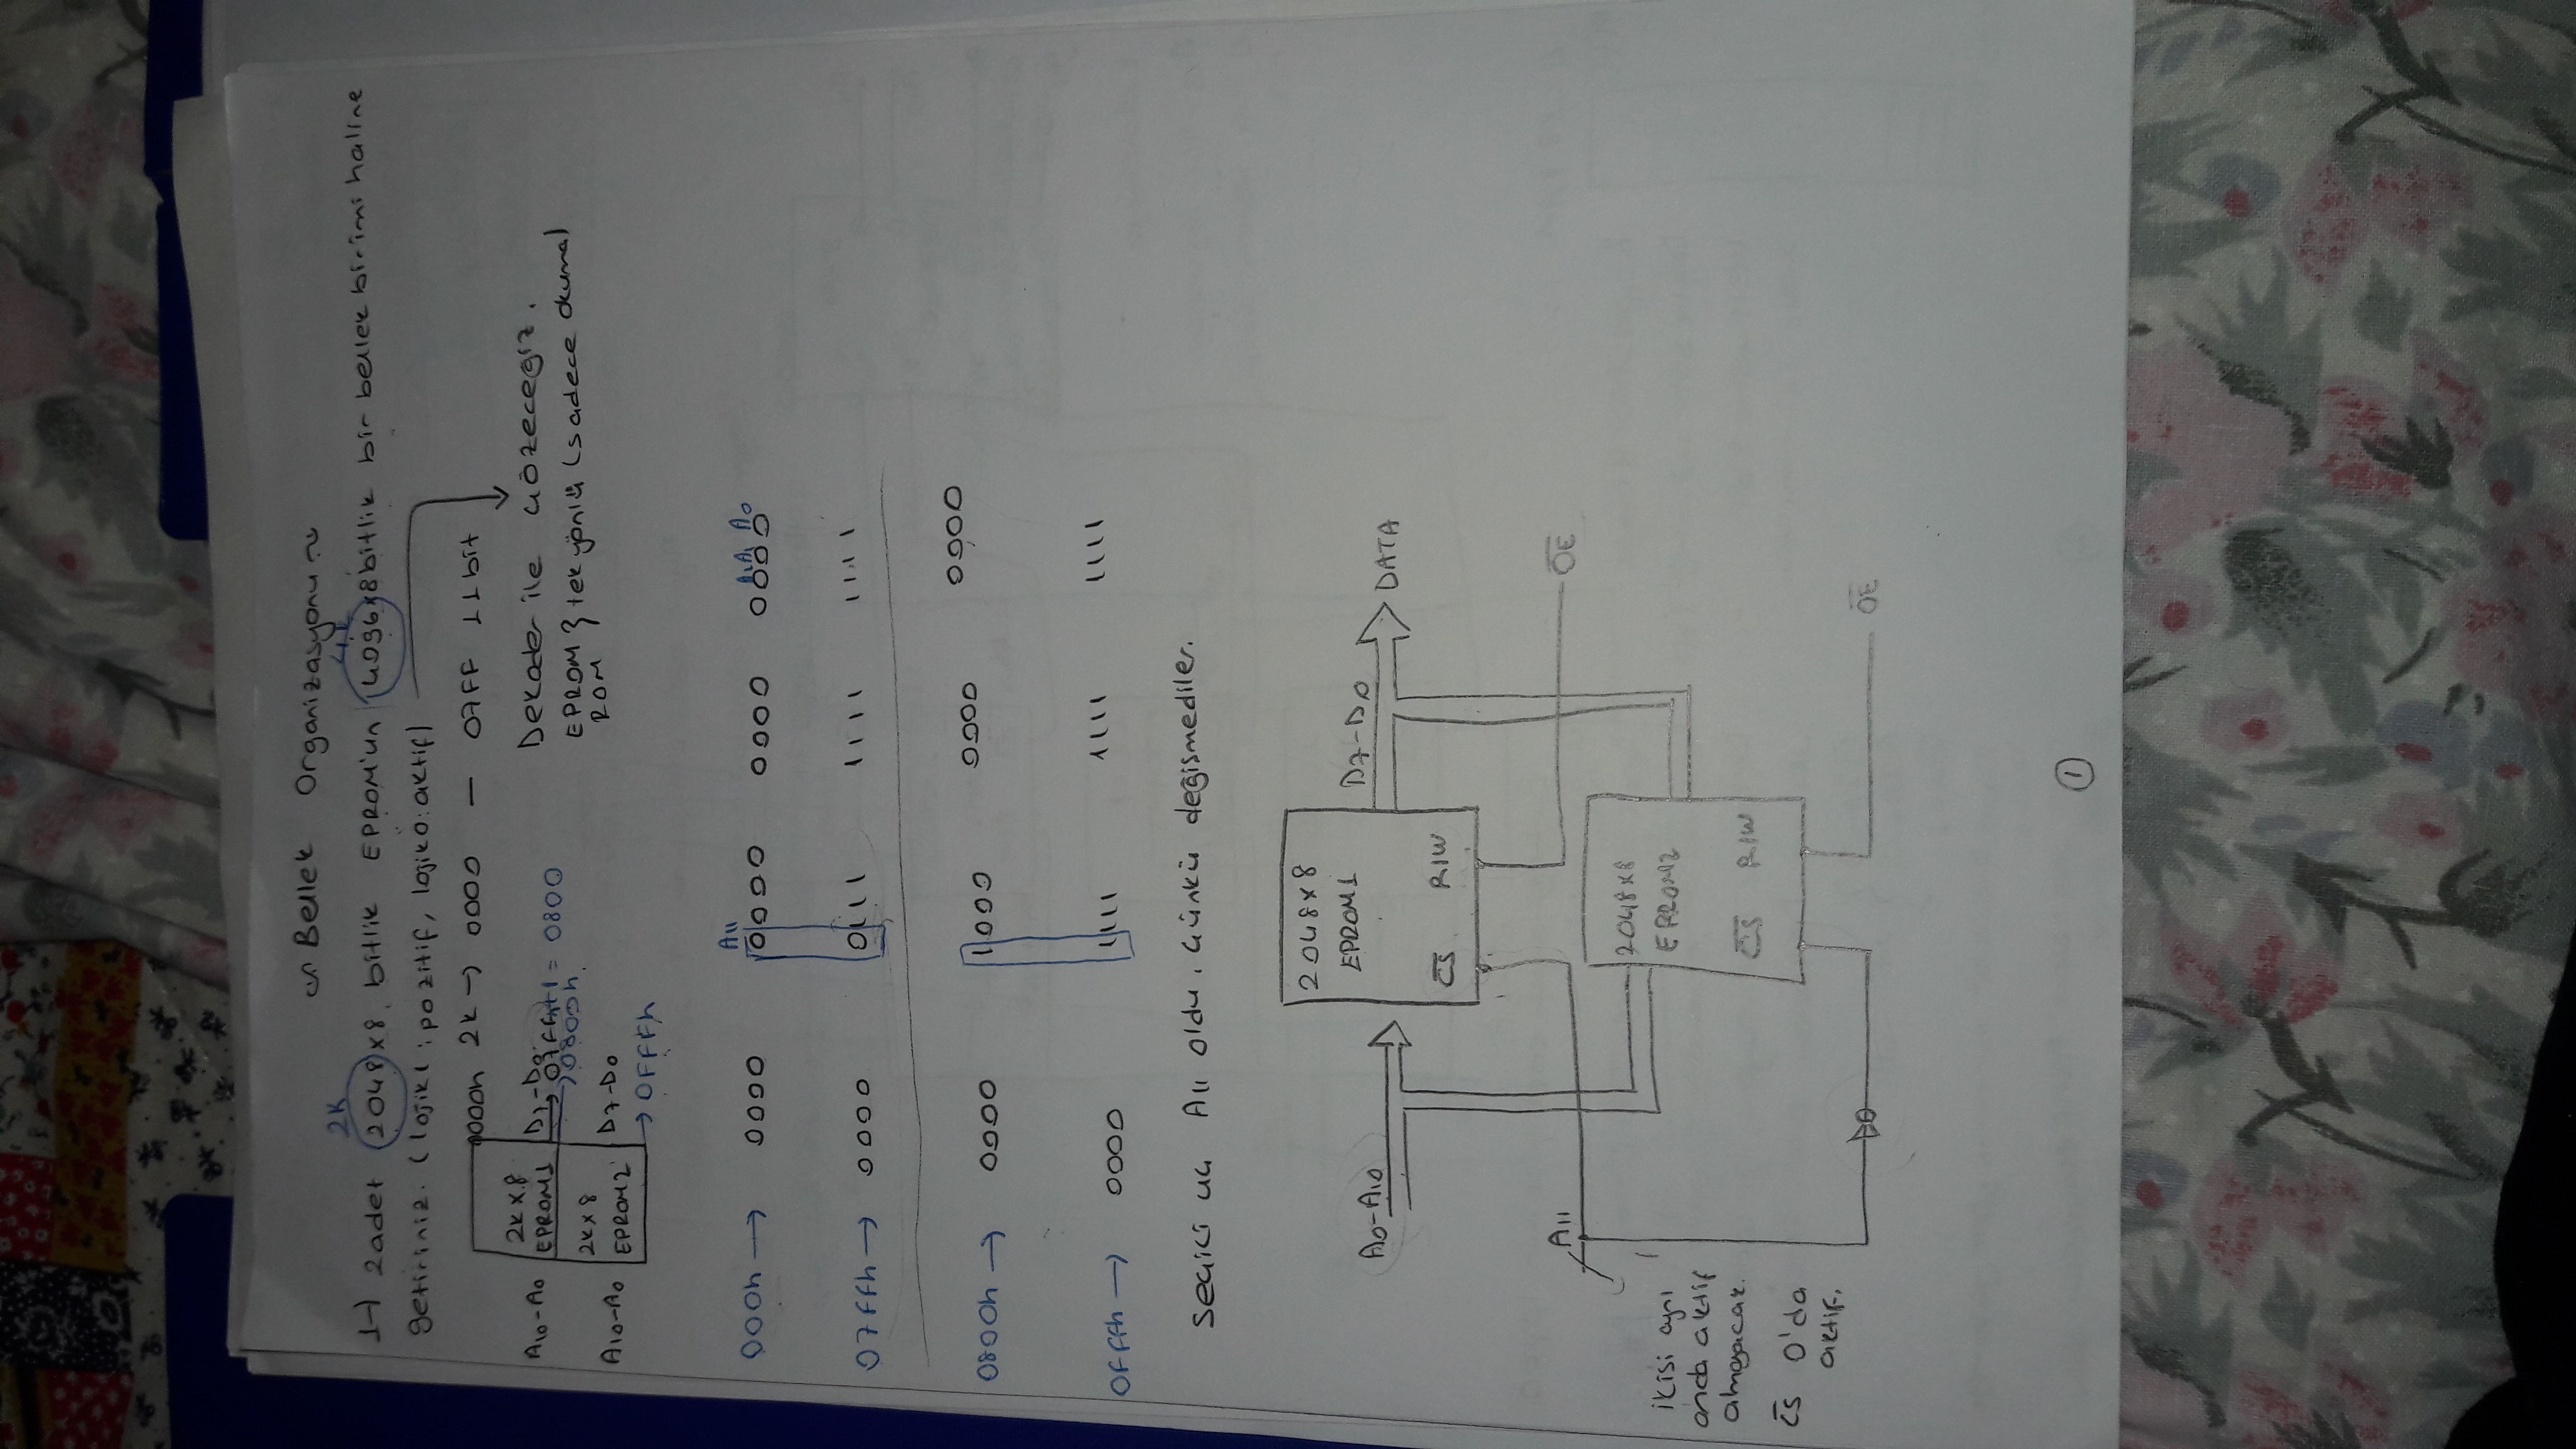 Bellek Organizasyonu
2K 4K
1-) 2 adet 2048x8 bitlik EPROM'un 4096x8 bitlik bir bellek birimi haline
getiriniz. (lojik1: pozitif, lojik0: aktif)
0000h 2K → 0000 — 07FF 11 bit
A10-A0 2Kx8 EPROM1 D7-D0
07FFh+1 = 0800
→ 0800h
Dekoder ile çözeceğiz.
EPROM } tek yönlü (sadece okuma)
ROM
A10-A0 2Kx8 EPROM2 D7-D0
→ 0FFFh
A11
A2 A1 A0
000h → 0000 0000 0000 0000
07FFh → 0000 0111 1111 1111
0800h → 0000 1000 0000 0000
0FFFh → 0000 1111 1111 1111
Seçici uç A11 oldu. Çünkü değişmediler.
2048x8
EPROM1
A0-A10
D7-D0
DATA
CS̅ R/W
A11
O̅E̅
2048x8
EPROM2
CS̅ R/W
O̅E̅
ikisi aynı
anda aktif
olmayacak.
CS̅ 0'da
aktif.
1